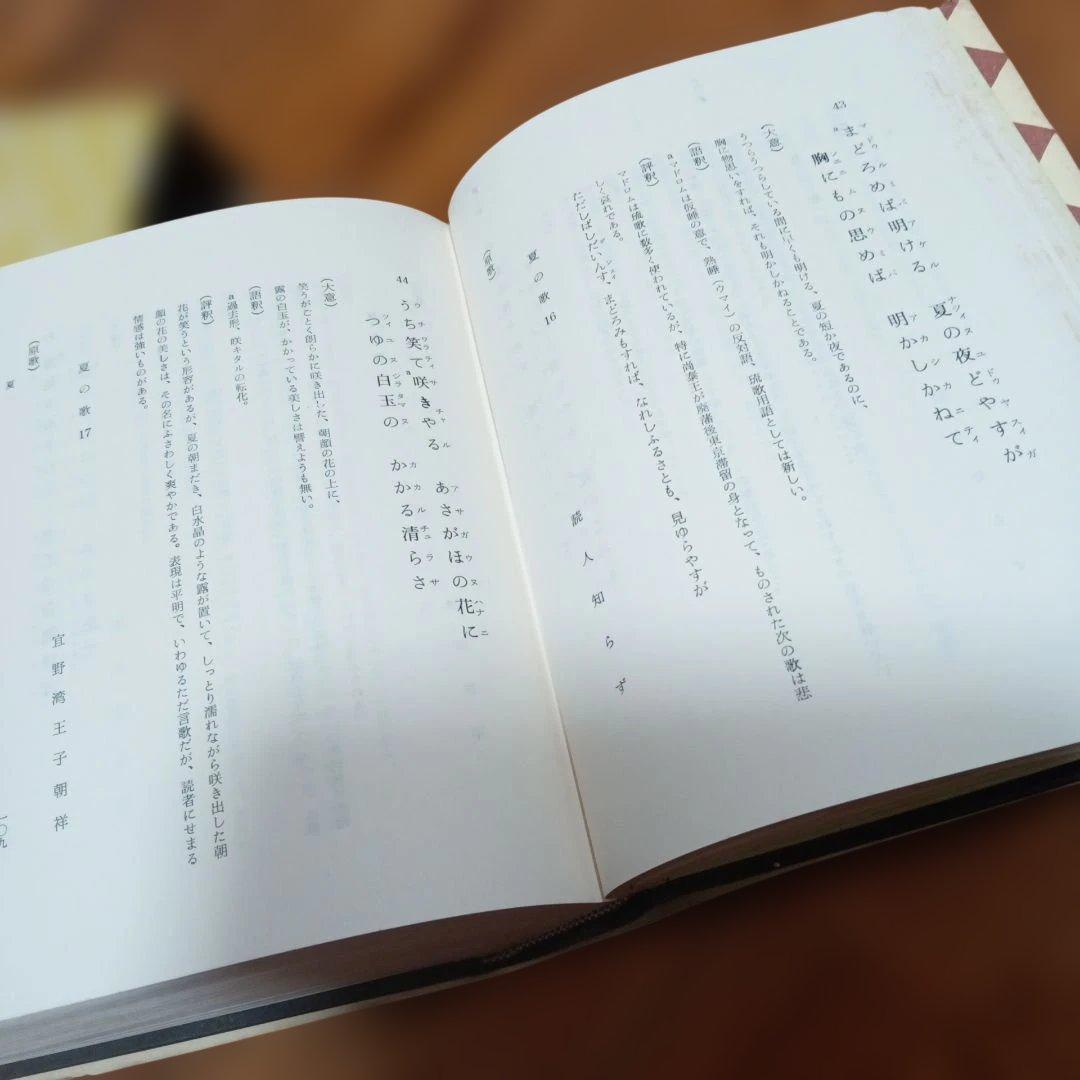 43
まどろめば明ける 夏の夜どやすが
胸にもの思めば 明かしかねて
(大意)
うつらうつらしている間に早くも明ける、夏の短か夜であるのに、
胸に物思いをすれば、それも明かしかねることである。
(語釈)
aマドロムは仮睡の意で、熟睡(ウマイ)の反対語、琉歌用語としては新しい。
(評釈)
マドロムは琉歌に数多く使われているが、特に尚泰王が廃藩後東京滞留の身となって、ものされた次の歌は悲
しく哀れである。
ただしばしだいんす、まどろみもすれば、なれしふるさとも、見ゆらやすが
夏の歌16
読人知らず
(原歌)
44
うち笑て咲きやる あさがほの花に
つゆの白玉の かかる清らさ
(大意)
笑うがごとく朗らかに咲き出した、朝顔の花の上に、
露の白玉が、かかっている美しさは譬えようも無い。
(語釈)
a過去形、咲キタルの転化。
(評釈)
花が笑うという形容があるが、夏の朝まだき、白水晶のような露が置いて、しっとり濡れながら咲き出した朝
顔の花の美しさは、その名にふさわしく爽やかである。表現は平明で、いわゆるただ言歌だが、読者にせまる
情感は強いものがある。
夏の歌17
宜野湾王子朝祥
(原歌)
夏
一〇九